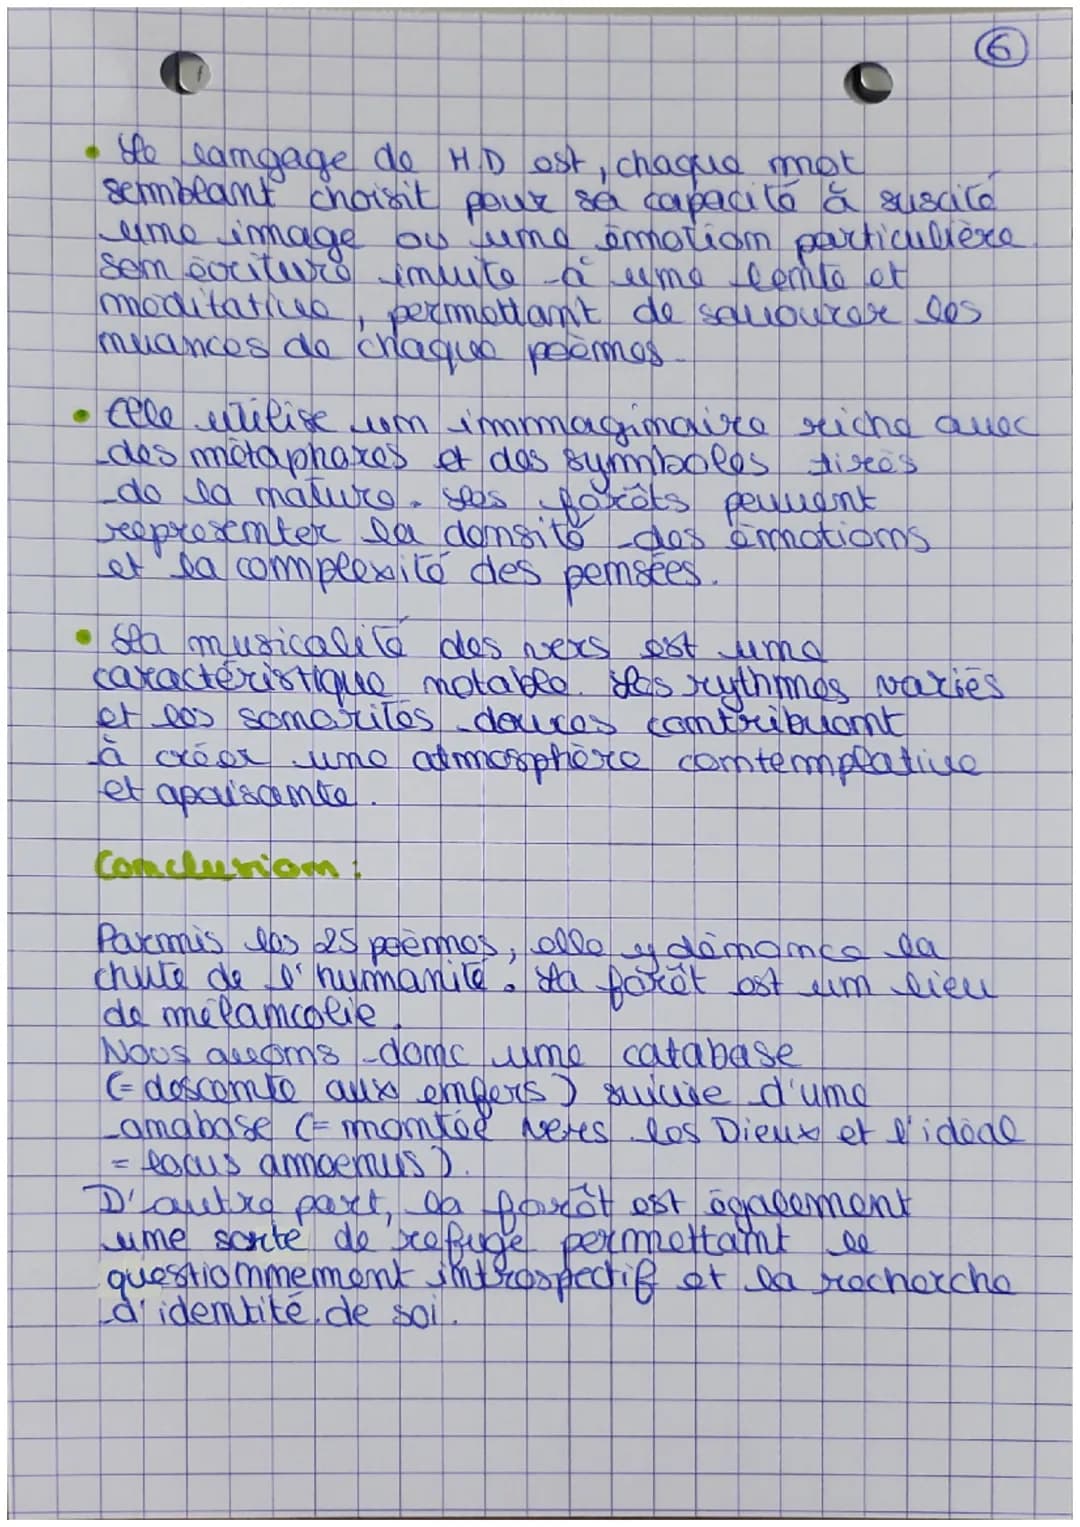 6
• Le langage de H.D est, chaque mot
semblant choisit pour sa capacité à suscité
une image ou une émotion particulière.
Son écriture invite à une lente et
méditative, permettant de savourer les
nuances de chaque poèmes.
• Elle utilise un immaginaire riche avec
des métaphores et des symboles tirés
de la nature. Les forêts peuvent
représenter la densité des émotions
et la complexité des pensées.
• La musicalité des vers est une
caractéristique notable. Les rythmes variés
et les sonorités douces contribuant
à créer une atmosphère contemplative
et apaisante.
Conclusion :
Parmis les 25 poèmes, elle y dénonce la
chute de l'humanité. La forêt est un lieu
de mélancolie.
Nous avons donc une catabase
(= descente aux enfers) suivie d'une
anabase (= montée vers les Dieux et l'idéal
= locus amoenus).
D'autre part, la forêt est également
une sorte de refuge permettant le
questionnement introspectif et la recherche
d'identité de soi.